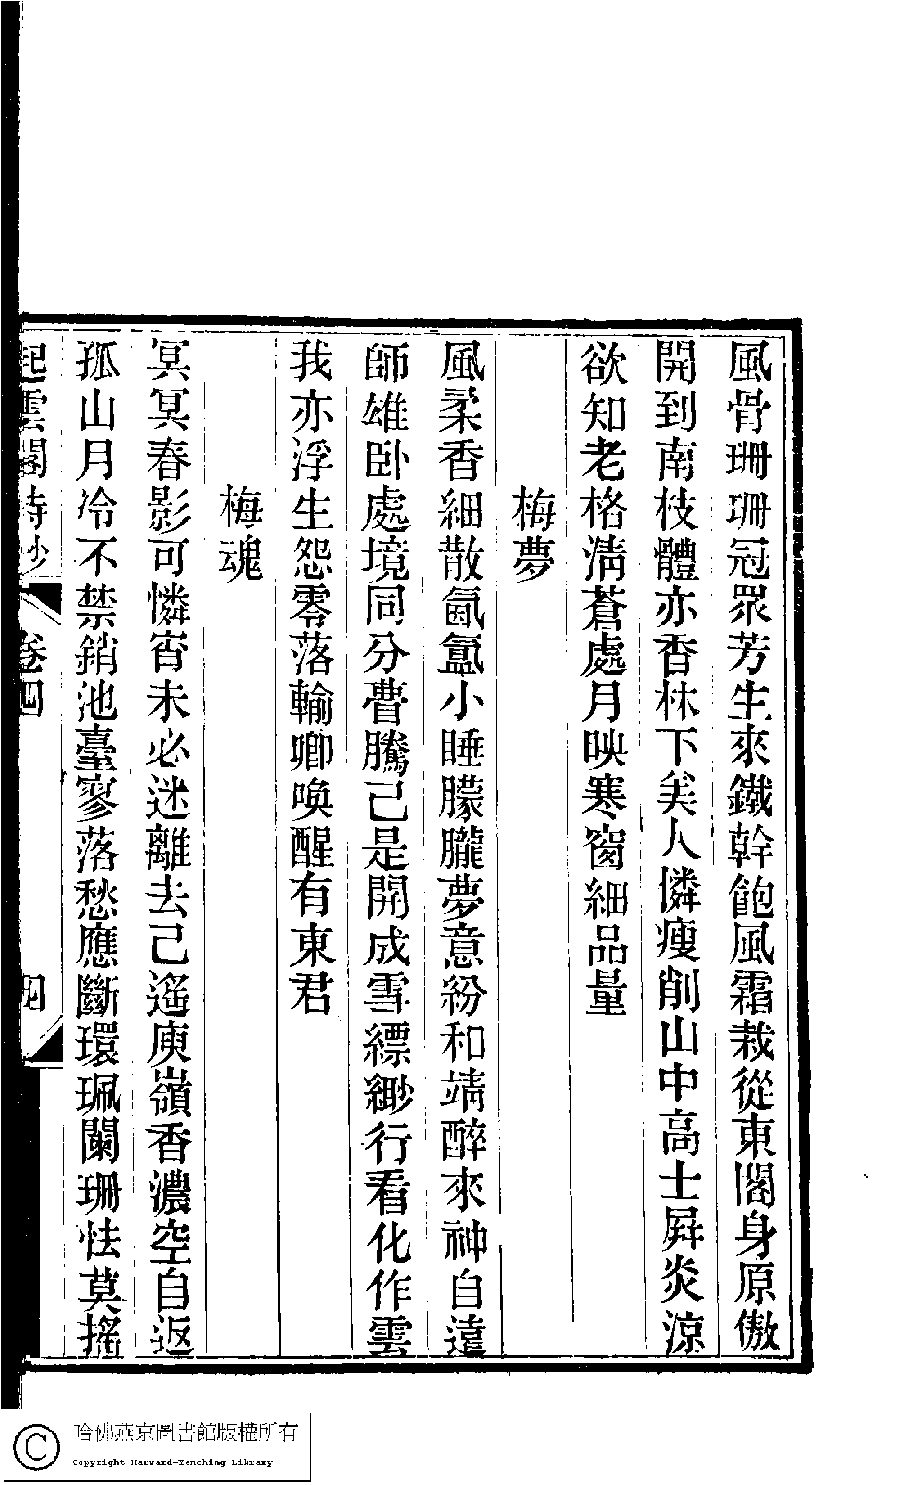 風骨珊珊冠眾芳生來鐵幹飽風霜栽從東閣身原傲
開到南枝體亦香林下美人憐瘦削山中高士屏炎涼
欲知老格淸蒼處月映寒窗細品量
梅夢
風柔香細散氤氳小睡朦朧夢意紛和靖醉來神自遠
師雄卧處境同分瞢騰已是開成雪縹緲行看化作雲
我亦浮生怨零落輸卿喚醒有東君
梅魂
冥冥春影可憐宵未必迷離去已遙庾嶺香濃空自返
孤山月冷不禁銷池臺寥落愁應斷環珮闌珊怯莫搖
起雲閣詩鈔 卷四 四
哈佛燕京圖書館版權所有
Copyright Harvard-Yenching Library